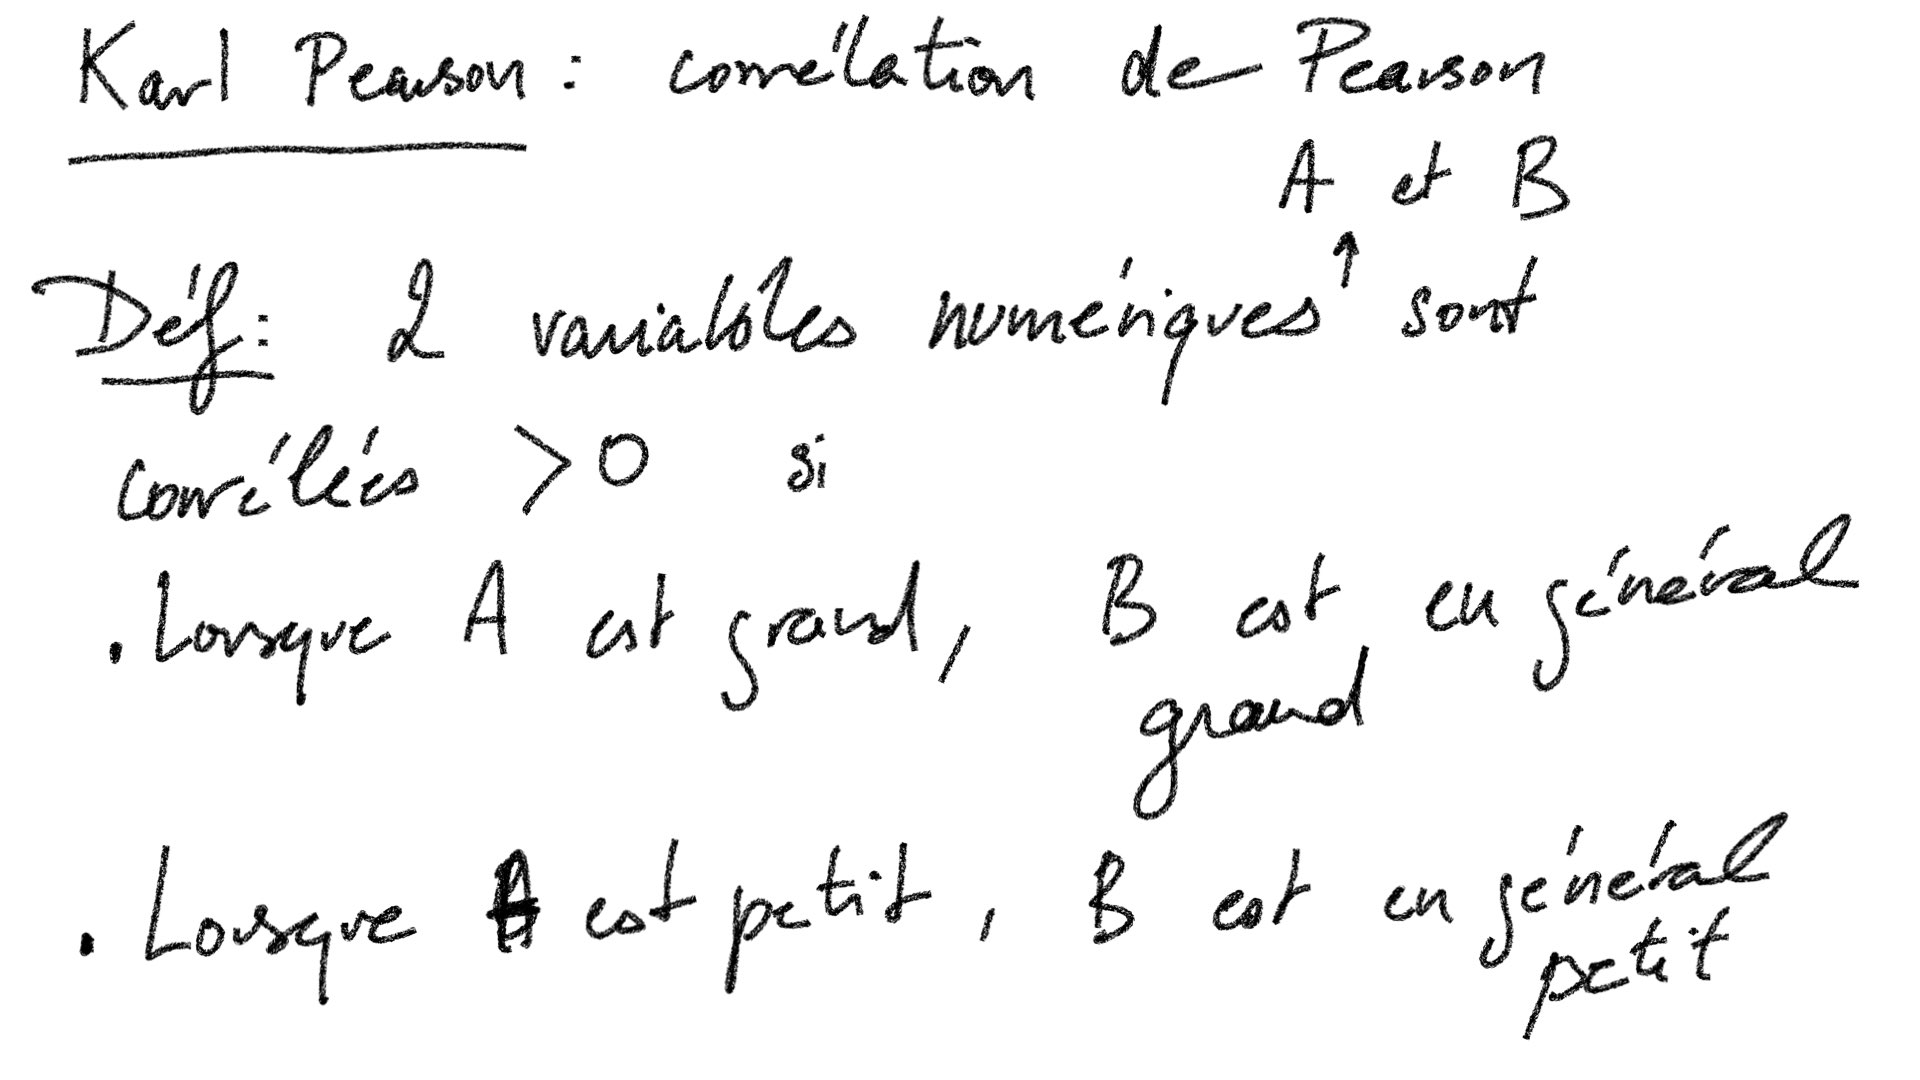 Karl Pearson : corrélation de Pearson
A et B
↑
Déf : 2 variables numériques sont
corrélées >0 si
. Lorsque A est grand, B est en général
grand
. Lorsque A est petit, B est en général
petit